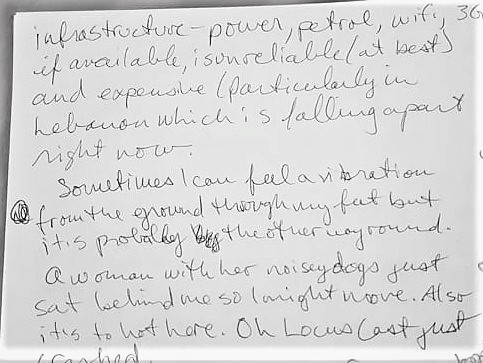 infrastructure - power, petrol, wifi, 3G
if available, is unreliable (at best)
and expensive (particularly in
Lebanon which is falling apart
right now.
Sometimes I can feel a vibration
NO from the ground through my feet but
it's probably the other way round.
A woman with her noisey dogs just
sat behind me so I might move. Also
it's to hot here. Oh Locus Cast just
crashed.